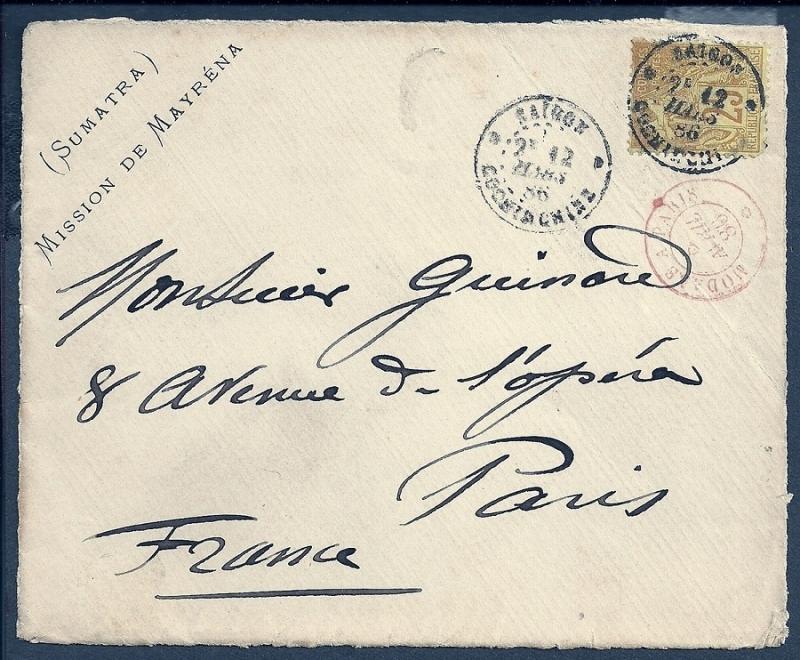 (SUMATRA)
MISSION DE MAYRÉNA
SAIGON
12
MARS
86
COCHINCHINE
25
SAIGON
12
MARS
86
COCHINCHINE
MODANE A PARIS
AVRIL
86
Monsieur Guinard
8 Avenue de l'opéra
Paris
France